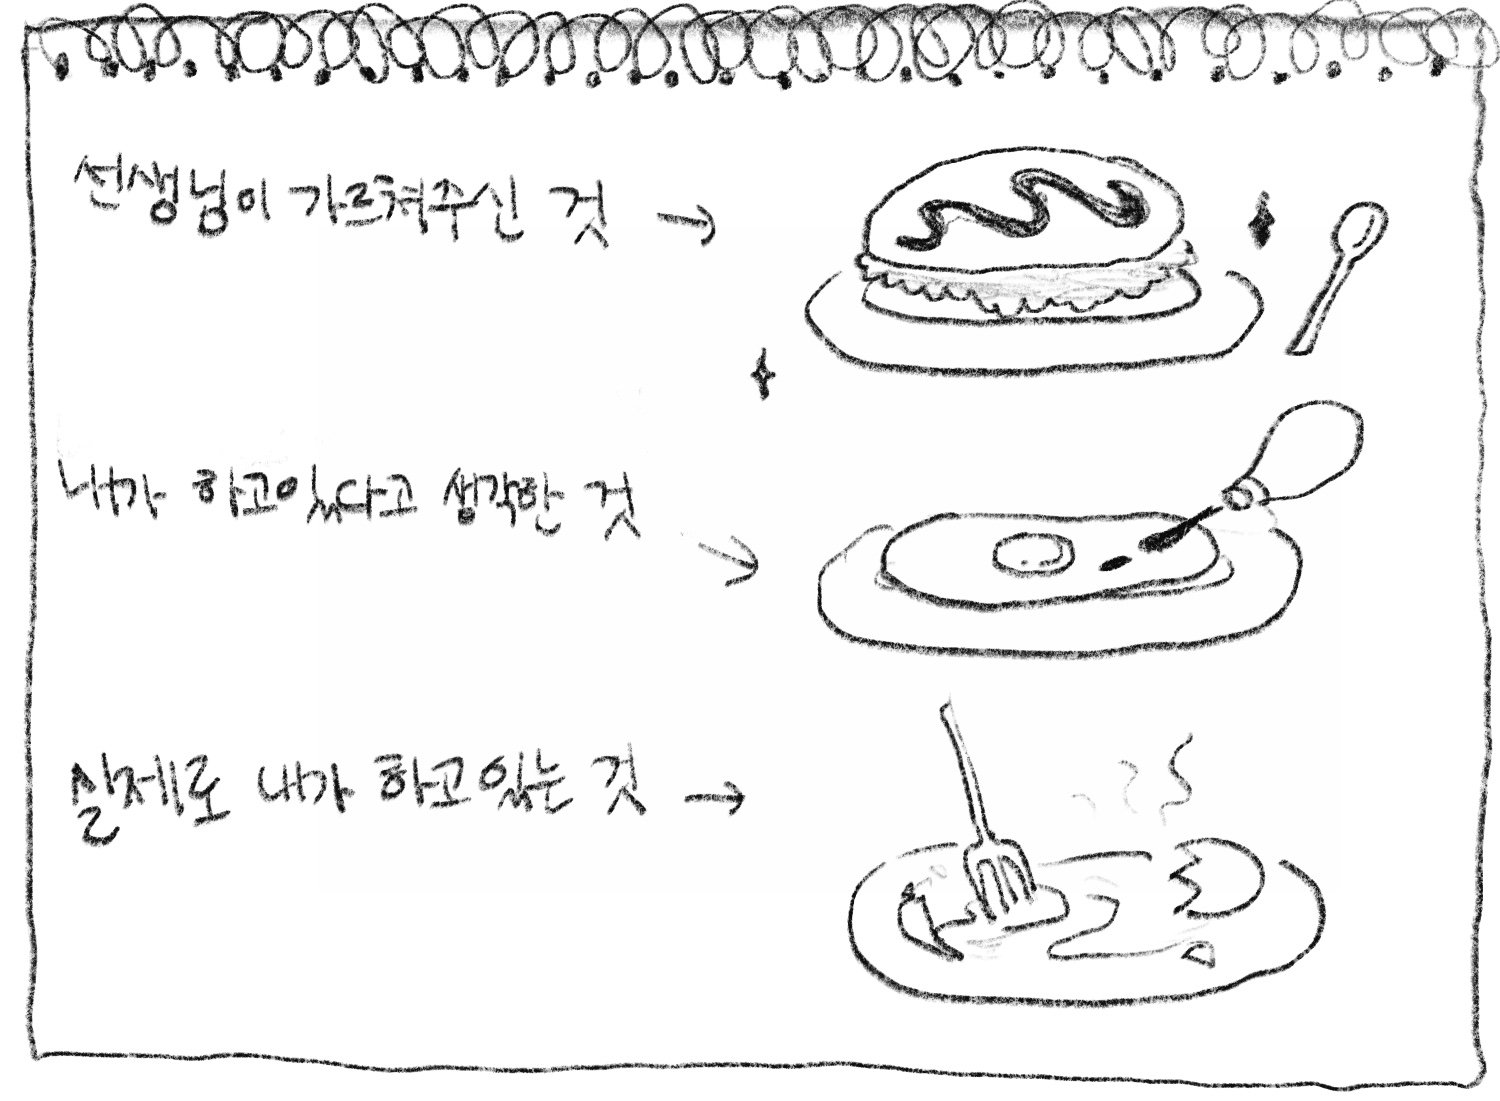 선생님이 가르쳐주신 것 →
내가 하고있다고 생각한 것 →
실제로 내가 하고있는 것 →